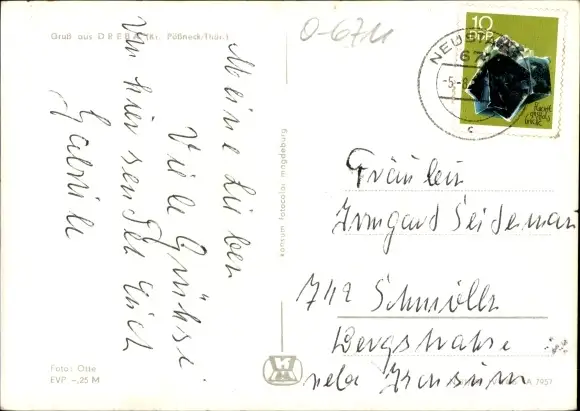 Gruß aus DREBA (Kr. Pößneck/Thür.)
O-6711
10
DDR
NEUSTADT
67
-5.-8.
c
Meine Lieben
Viele Grüße
von hier sendet Euch
Gabriele
konsum fotocolor magdeburg
Fräulein
Irmgard Seideman
742 Schmölln
Bergstraße
Foto: Otte
EVP -,25 M
A 7957